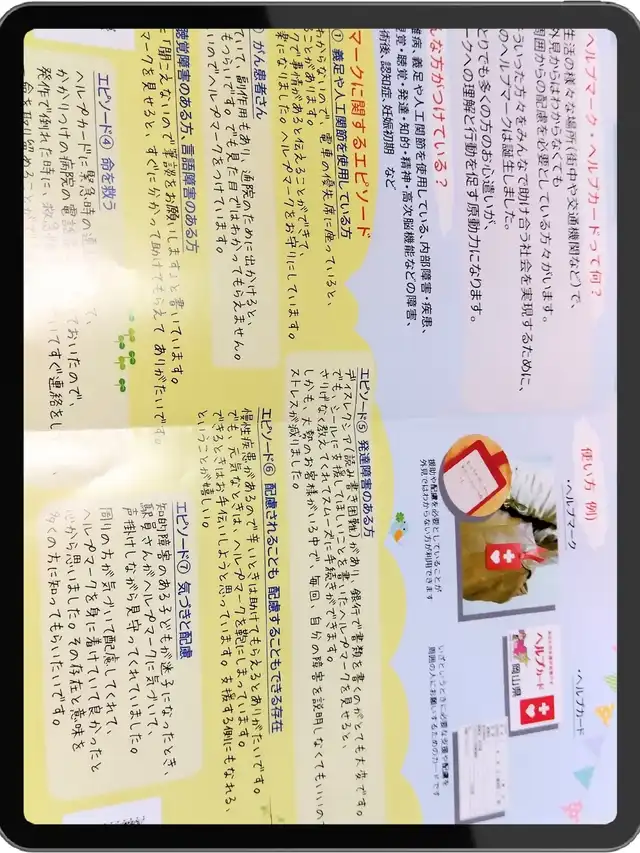 ヘルプマーク・ヘルプカードって何？
生活の様々な場所(街中や交通機関など)で、
外見からはわからなくても
周囲からの配慮を必要としている方々がいます。
ういった方々をみんなで助け合う社会を実現するために、
のヘルプマークは誕生しました。
とりでも多くの方のお心遣いが、
ークへの理解と行動を促す原動力になります。
んな方がつけている？
難病、義足や人工関節を使用している、内部障害・疾患、
覚・聴覚・発達・知的・精神・高次脳機能などの障害、
術後、認知症、妊娠初期 など
マークに関するエピソード
① 義足や人工関節を使用している方
わからないので、電車の優先席に座っていると、
ことがあります。
クで事情があると伝えることができて、
楽になりました。ヘルプマークをお守りにしています。
② がん患者さん
ていて、副作用もあり、通院のために出かけると、
もつらいです。でも見た目ではわかってもらえません。
いのでヘルプマークをつけています。
聴覚障害のある方、言語障害のある方
「聞こえないので筆談をお願いします」と書いています。
マークを見せると、すぐに分かって助けてもらえてありがたいです。
エピソード④ 命を救う
ヘルプカードに緊急時の連
で、
かかりつけの病院の電話
ておいたので、
発作で倒れた時に、救急
いてすぐ連絡をし
命を取り留めることが
エピソード⑤ 発達障害のある方
ディスレクシア(読み書き困難)があり、銀行で書類を書くのがとても大変です。
でも、シールに支援してほしいことを書いたヘルプマークを見せると、
さりげなく教えてくれてスムーズに手続きができます。
しかも、大勢のお客様がいる中で、毎回、自分の障害を説明しなくてもいいので
ストレスが減りました。
エピソード⑥ 配慮されることも 配慮することもできる存在
慢性疾患があるので辛いときは助けてもらえるとありがたいです。
でも、元気なときは、ヘルプマークを鞄にしまっています。
できるときはお手伝いしようと思っています。支援する側にもなれる、
ということが嬉しい。
エピソード⑦ 気づきと配慮
知的障害のある子どもが迷子になったとき、
駅員さんがヘルプマークに気づいて、
声掛けしながら見守ってくれていました。
周りの方が気づいて配慮してくれて、
ヘルプマークを身に着けていて良かったと
心から思いました。その存在と意味を
多くの方に知ってもらいたいです。
使い方 例)
・ヘルプマーク
援助や配慮を必要としていることが
外見ではわからない方が利用できます
・ヘルプカード
ヘルプカード
岡山県
いざというときに必要な支援や配慮を
周囲の人にお願いするためのカードです